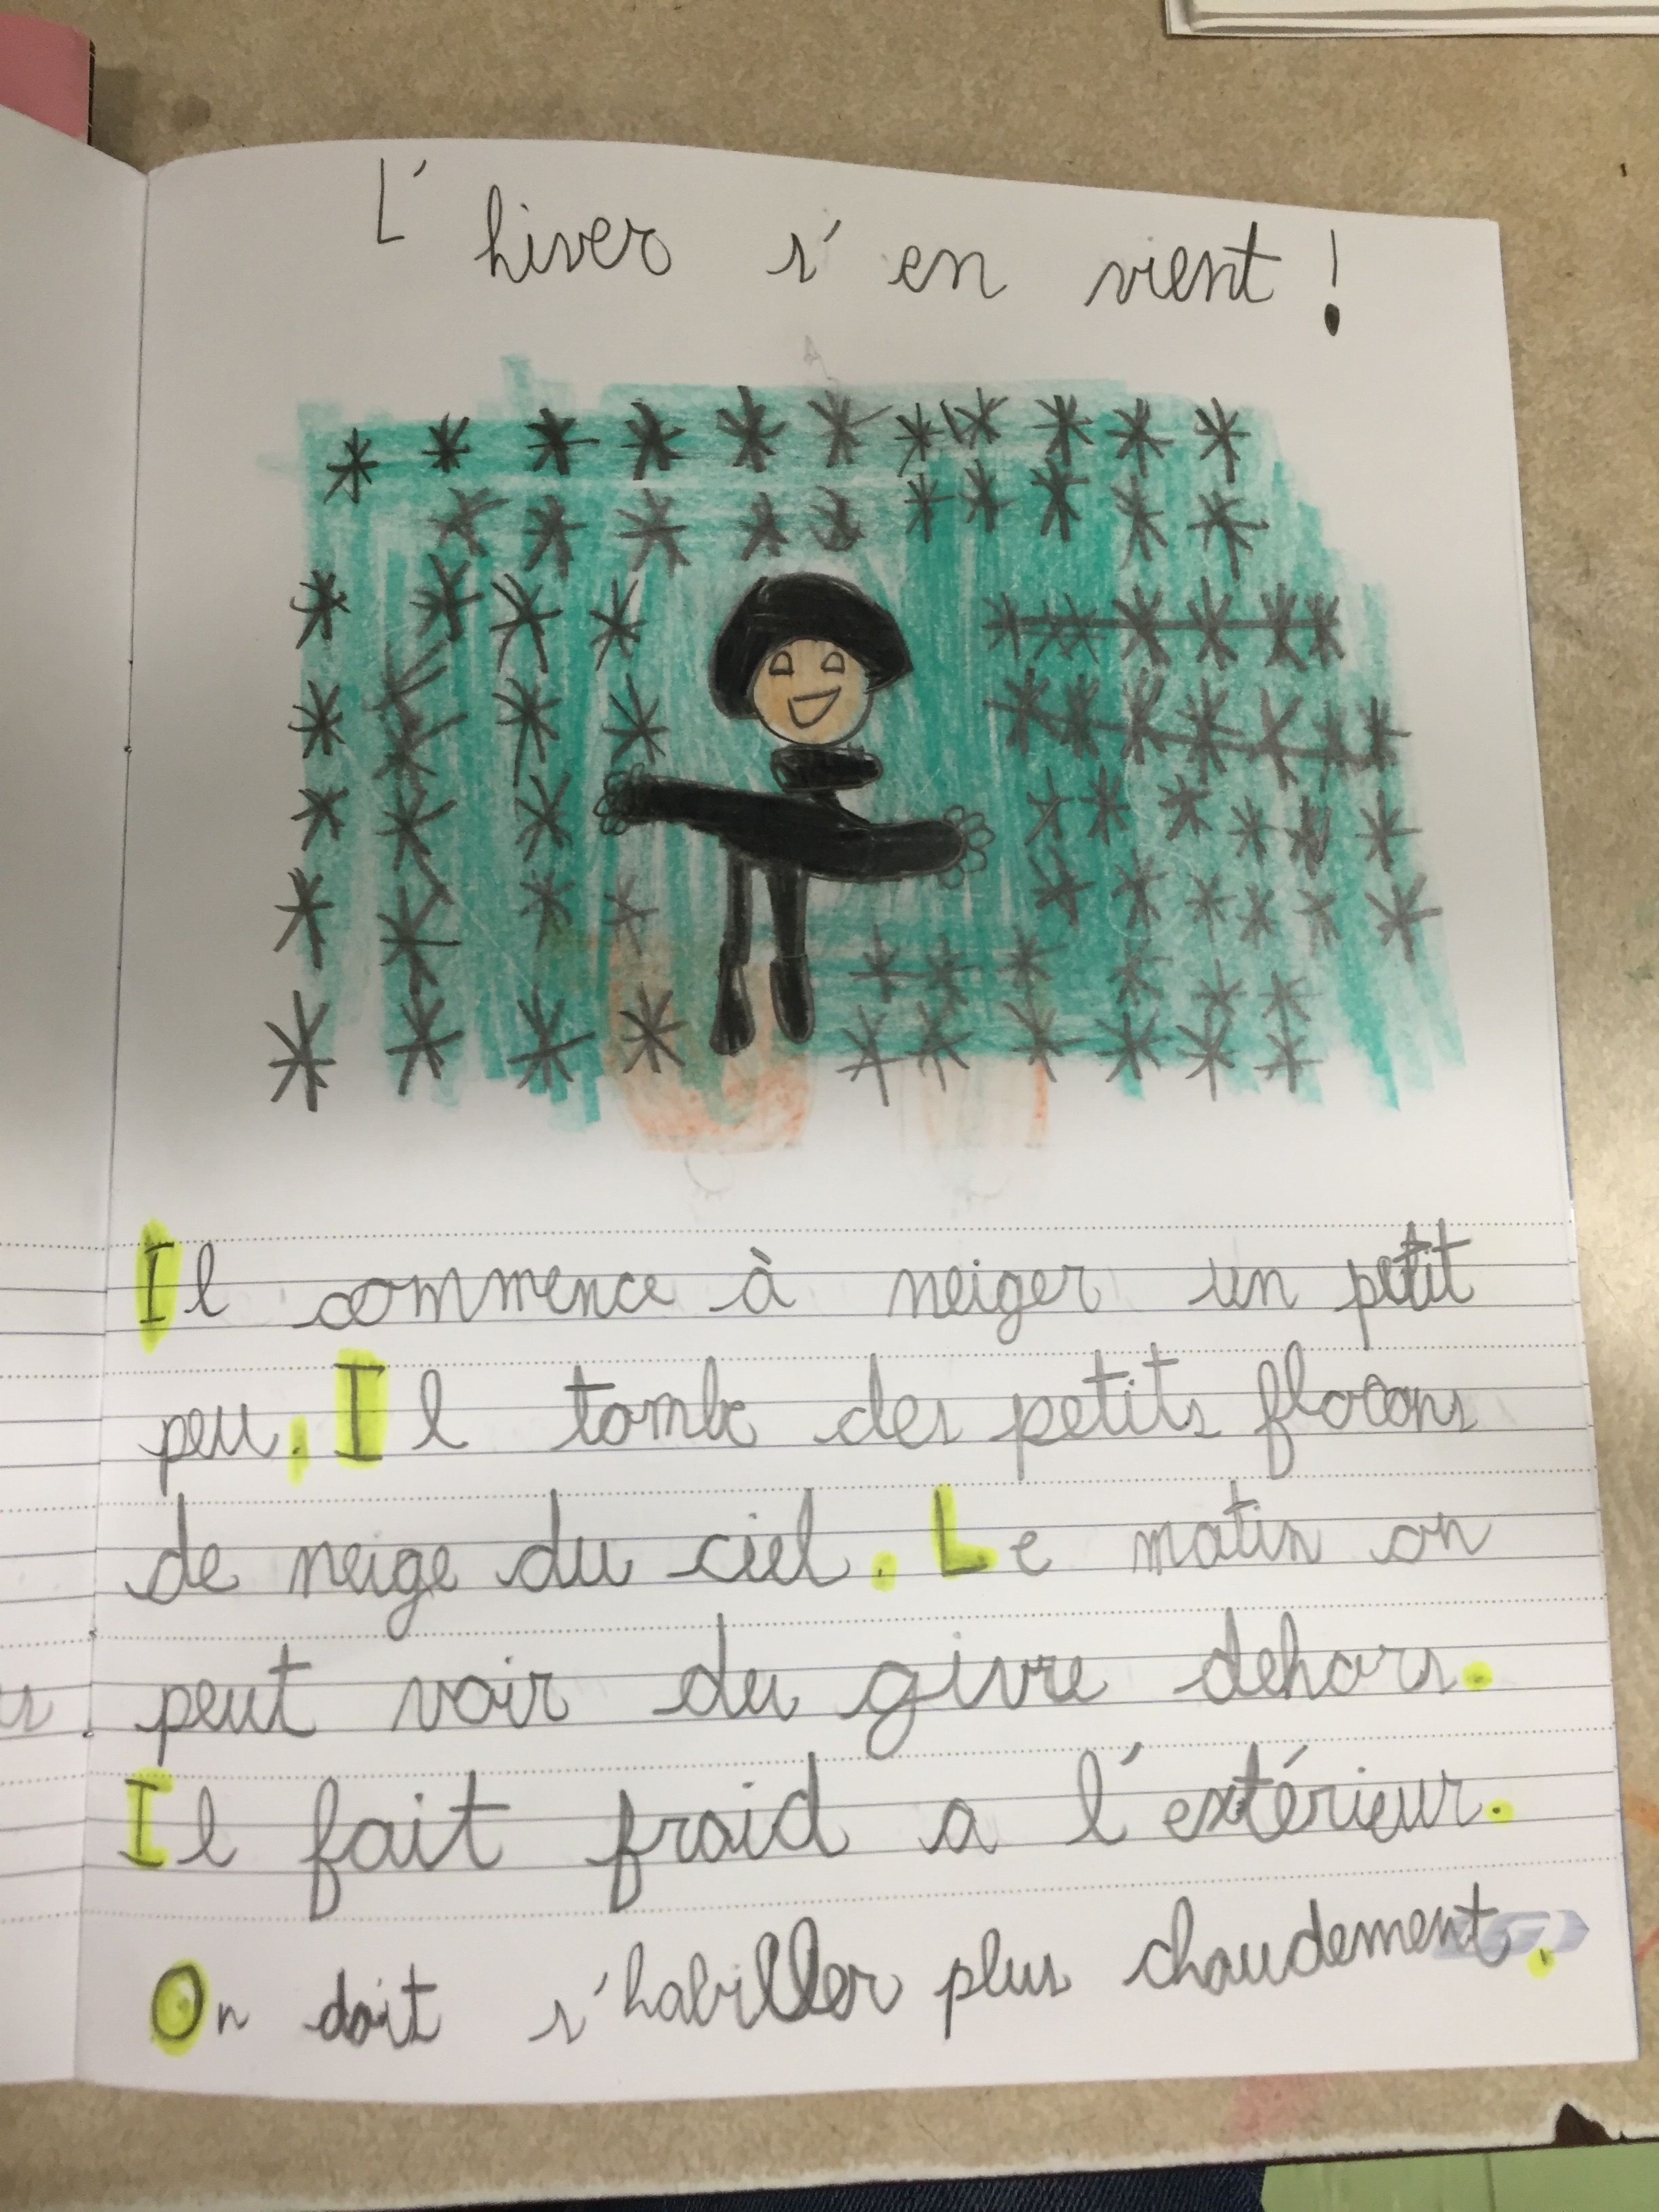 L'hiver s'en vient !
Il commence à neiger un petit
peu. Il tombe des petits flocons
de neige du ciel. Le matin on
peut voir du givre dehors.
Il fait froid a l'extérieur.
On doit s'habiller plus chaudement.